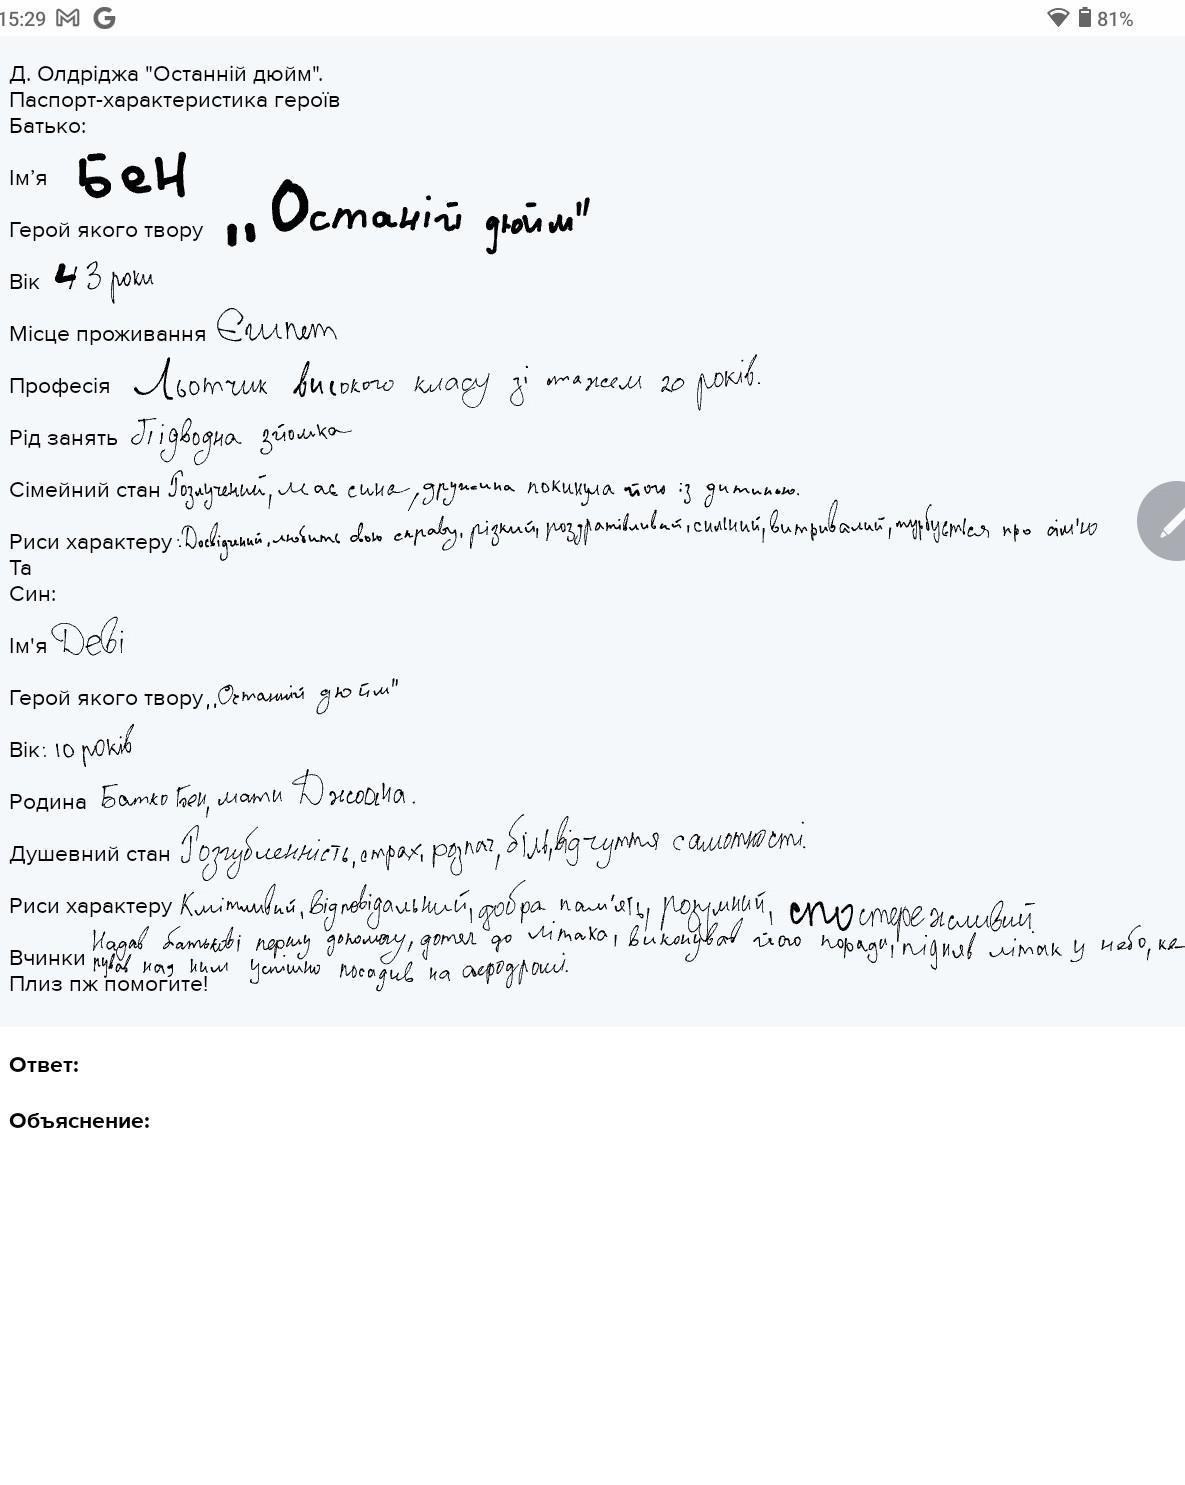 15:29 81%
Д. Олдріджа "Останній дюйм".
Паспорт-характеристика героїв
Батько:
Ім’я Бен
Герой якого твору ,,Останій дюйм"
Вік 43 роки
Місце проживання Єгипет
Професія Льотчик високого класу зі стажем 20 років.
Рід занять Підводна зйомка
Сімейний стан Розлучений, має сина, дружина покинула його із дитиною.
Риси характеру: Досвідчиний, любить свою справу, різкий, роздратівливий, сильний, витривалий, турбується про сім'ю
Та
Син:
Ім'я Деві
Герой якого твору ,,Останній дюйм"
Вік: 10 років
Родина Батко Бен, мати Джоана.
Душевний стан Розгубленність, страх, розпач, біль, відчуття самотності.
Риси характеру Кмітливий, відповідальний, добра пам'ять, розумний, спостережливий.
Надав батькові першу допомогу, дотяг до літака, виконував його поради, підняв літак у небо, ке
Вчинки рував над ним успішно посадив на аеродромі.
Плиз пж помогите!
Ответ:
Объяснение: